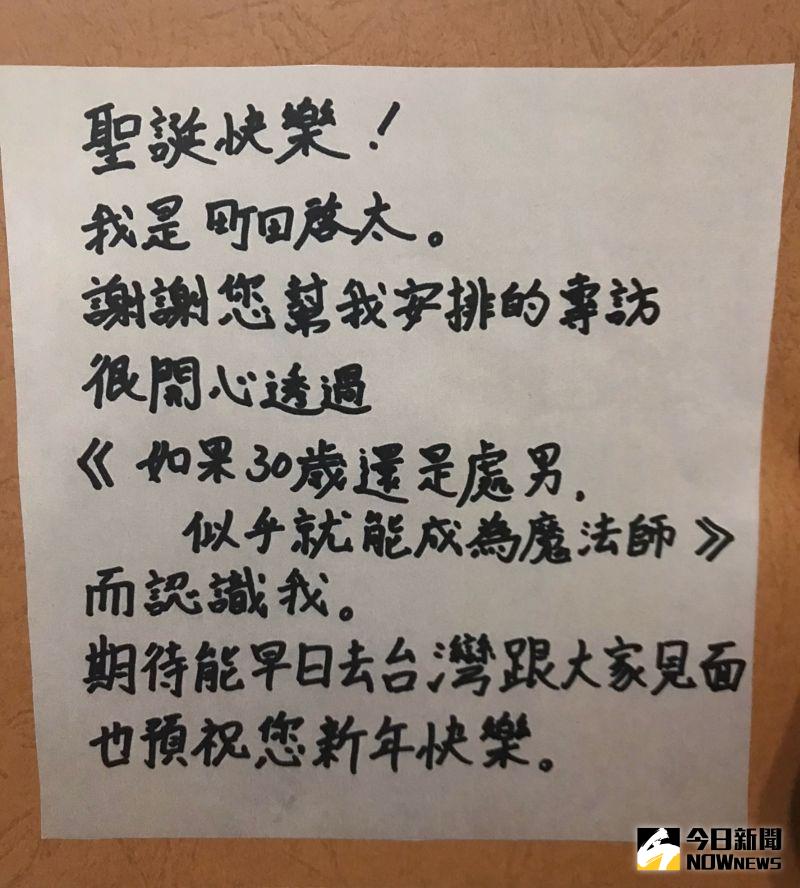 聖誕快樂！
我是町田啓太。
謝謝您幫我安排的專訪
很開心透過
《如果30歲還是處男，
似乎就能成為魔法師》
而認識我。
期待能早日去台灣跟大家見面
也預祝您新年快樂。
今日新聞
NOWNEWS